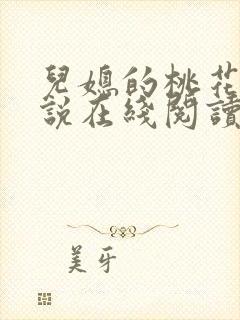 兒媳的桃花
說在綫閱讀
美牙